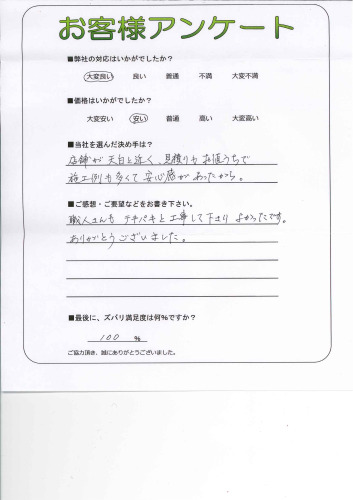 お客様アンケート
■弊社の対応はいかがでしたか？
大変良い 良い 普通 不満 大変不満
■価格はいかがでしたか？
大変安い 安い 普通 高い 大変高い
■当社を選んだ決め手は？
店舗が天白と近く、見積りもお値うちで
施工例も多くて安心感があったから。
■ご感想・ご要望などをお書き下さい。
職人さんも テキパキと工事して下さり よかったです。
ありがとうございました。
■最後に、ズバリ満足度は何％ですか？
100 %
ご協力頂き、誠にありがとうございました。